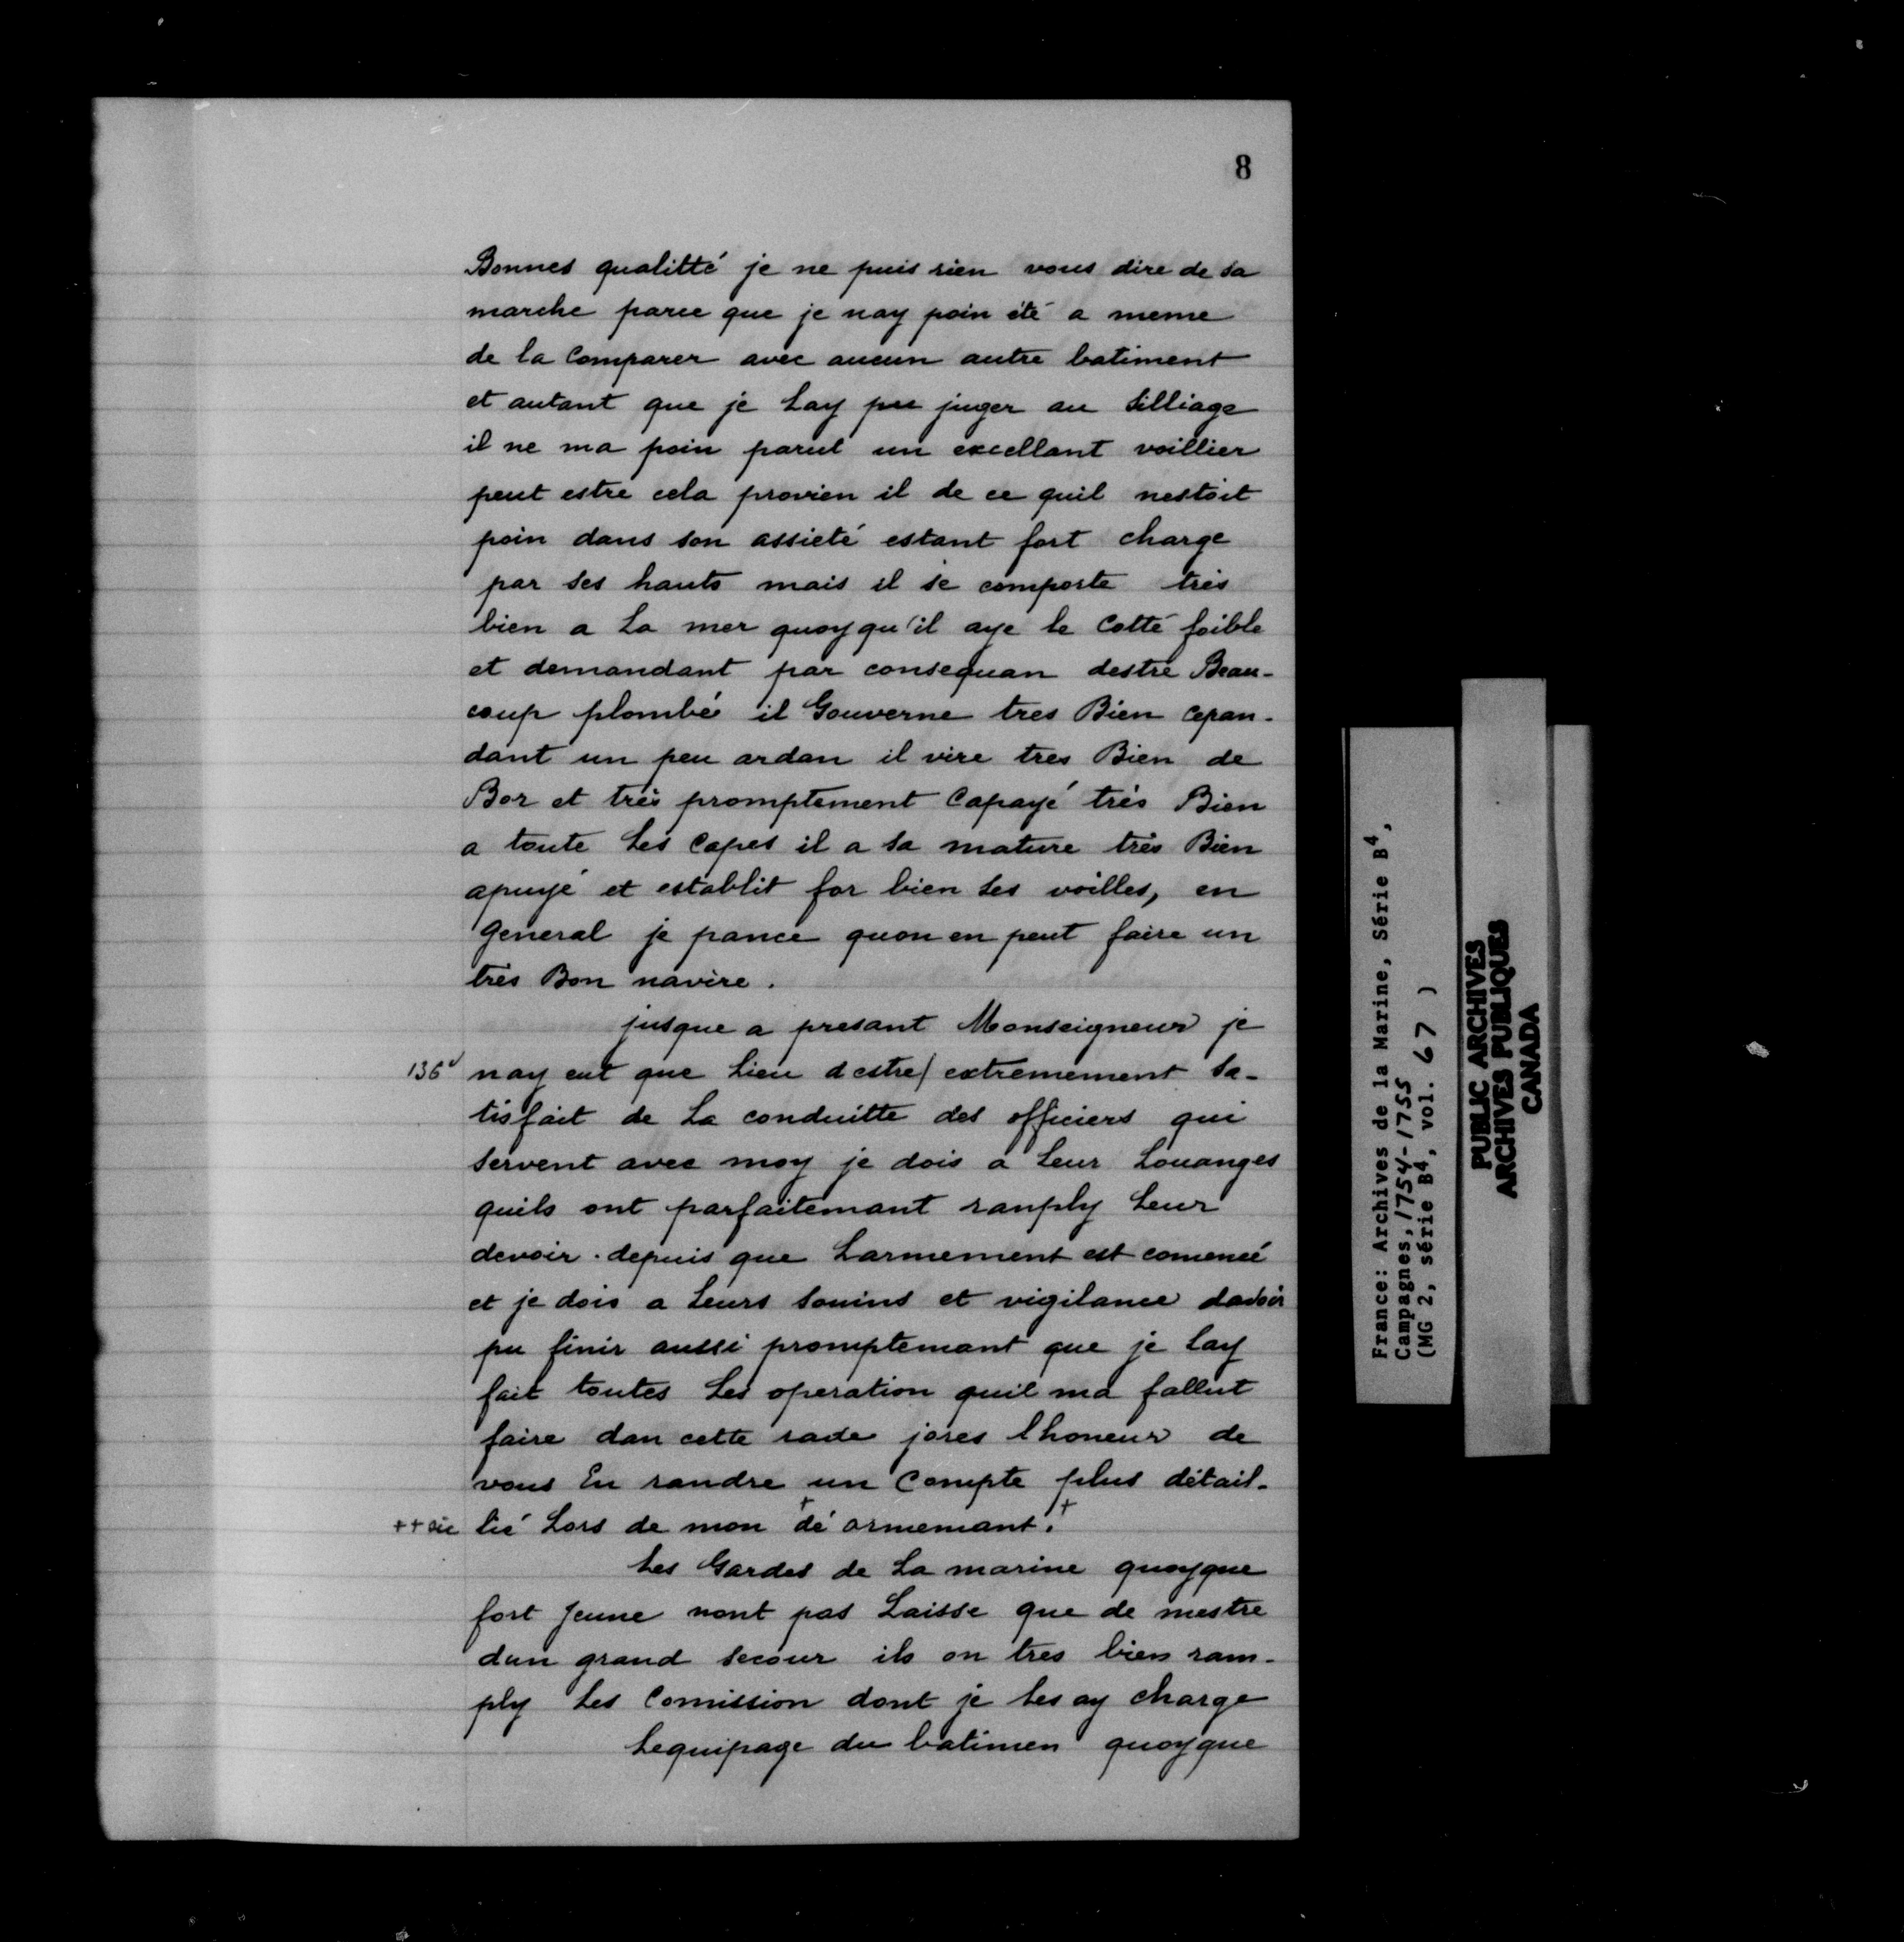 8
Bonnes qualitté je ne puis rien vous dire de sa
marche parce que je nay poin été a meme
de la Comparer avec aucun autre batiment
et autant que je Lay pu juger au Silliage
il ne ma poin parut un excellant voillier
peut estre cela provien il de ce quil nestoit
poin dans son assieté estant fort charge
par ses hauts mais il se comporte très
bien a La mer quoyqu'il aye le Cotté foible
et demandant par consequan destre Beau-
coup plombé il Gouverne tres Bien cepan-
dant un peu ardan il vire tres Bien de
Bor et très promptement Capayé très Bien
a toute Les Capes il a sa mature très Bien
apuyé et establit for bien ses voilles, en
General je pance quon en peut faire un
très Bon navire.
jusque a presant Monseigneur je
136v nay eut que Lieu destre/ extremement Sa-
tisfait de La conduitte des officiers qui
servent avec moy je dois a Leur Louanges
quils ont parfaitemant ranply Leur
devoir. depuis que Larmement est comencé
et je dois a Leurs souins et vigilance davoir
pu finir aussi promptemant que je Lay
fait toutes Les operation quil ma fallut
faire dan cette rade jores lhoneur de
vous En randre un Compte plus détail-
++ sic lié Lors de mon + dé armemant. +
Les Gardes de La marine quoyque
fort Jeune nont pas Laisse que de mestre
dun grand secour ils on tres bien ram-
ply Les Comission dont je Les ay charge
Lequipage du batimen quoyque
France: Archives de la Marine, Série B4,
Campagnes, 1754-1755
(MG 2, série B4, vol. 67 )
PUBLIC ARCHIVES
ARCHIVES PUBLIQUES
CANADA